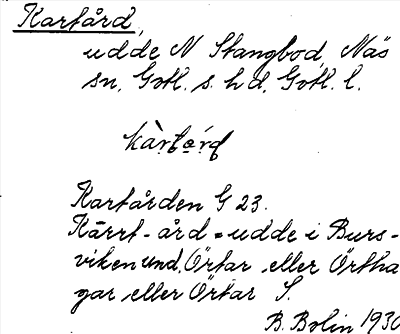 Kartård,
udde N Stangbod, Näs
sn, Gotl. s. hd, Gotl. l.
Kartården G 23.
Kärrt-ård = udde i Burs-
viken und. Örtar eller Örtha
gar eller Örtar S.
B. Bolin 1930